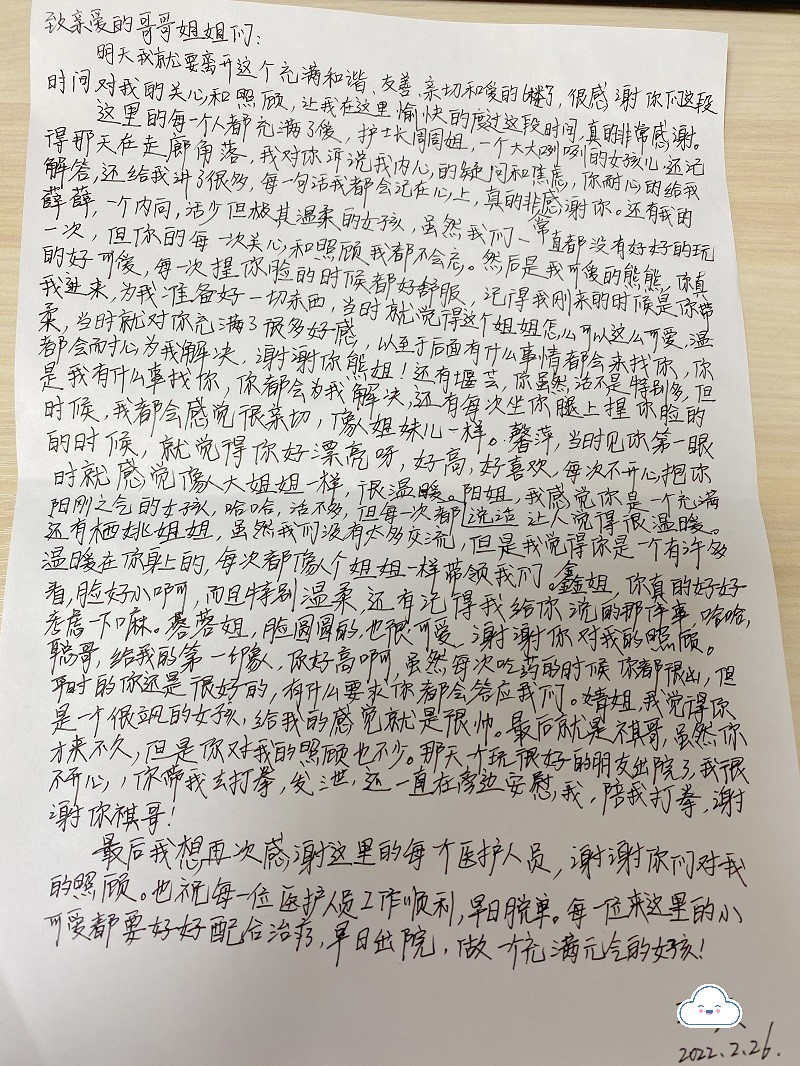 致亲爱的哥哥姐姐们:
明天我就要离开这个充满和谐、友善、亲切和爱的6楼了,很感谢你们这段
时间对我的关心和照顾,让我在这里愉快的度过这段时间,真的非常感谢。
这里的每一个人都充满了爱,护士长周周姐,一个大大咧咧的女孩儿,还记
得那天在走廊角落,我对你诉说我内心的疑问和焦虑,你耐心的给我
解答,还给我讲了很多,每一句话我都会记在心上,真的非常感谢你。还有我的
薛薛,一个内向,话少但极其温柔的女孩,虽然我们一直都没有好好的玩
一次,但你的每一次关心和照顾我都不会忘。然后是我可爱的熊熊,你真
的好可爱,每一次捏你脸的时候都好舒服,记得我刚来的时候是你带
我进来,为我准备好一切东西,当时就觉得这个姐姐怎么可以这么可爱,温
柔,当时就对你充满了很多好感,以至于后面有什么事情都会来找你,你
都会耐心为我解决,谢谢你熊姐!还有堰芸,你虽然话不是特别多,但
是我有什么事找你,你都会为我解决,还有每次坐你腿上捏你脸的
时候,我都会感觉很亲切,像姐妹儿一样。馨萍,当时见你第一眼
的时候,就觉得你好漂亮呀,好高,好喜欢,每次不开心抱你
时就感觉像大姐姐一样,很温暖。阳姐,我感觉你是一个充满
阳刚之气的女孩,哈哈,话不多,但每一次都说话让人觉得很温暖。
还有栖姚姐姐,虽然我们没有太多交流,但是我觉得你是一个有许多
温暖在你身上的,每次都像个姐姐一样带领我们。鑫姐,你真的好好
看,脸好小啊,而且特别温柔,还有记得我给你说的那件事,哈哈,
考虑一下嘛。蓉姐,脸圆圆的,也很可爱,谢谢你对我的照顾。
聪哥,给我的第一印象,你好高啊,虽然每次吃药的时候你都很凶,但
平时的你还是很好的,有什么要求你都会答应我们。婧姐,我觉得你
是一个很飒的女孩,给我的感觉就是很帅。最后就是祺哥,虽然你
才来不久,但是你对我的照顾也不少。那天个玩很好的朋友出院了,我很
不开心,你带我去打拳,发泄,还一直在旁边安慰我,陪我打拳,谢
谢你祺哥!
最后我想再次感谢这里的每个医护人员,谢谢你们对我
的照顾。也祝每一位医护人员工作顺利,早日脱单。每一位来这里的小
可爱都要好好配合治疗,早日出院,做一个充满元气的女孩!
2022.2.26.